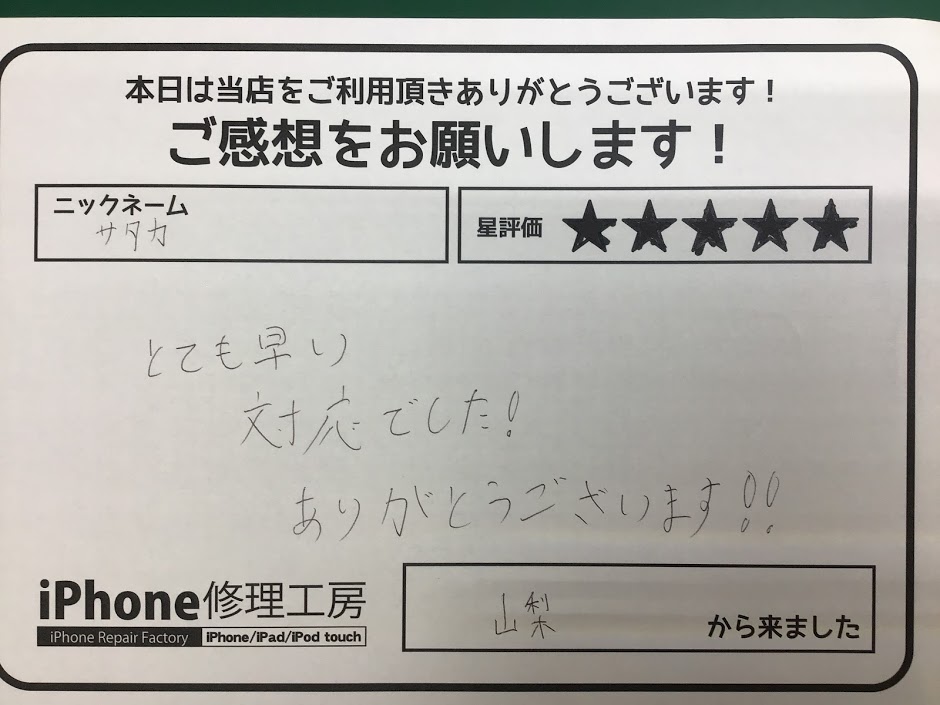 本日は当店をご利用頂きありがとうございます！
ご感想をお願いします！
ニックネーム
サタカ
星評価 ★★★★★
とても早い
対応でした！
ありがとうございます！！
iPhone修理工房
iPhone Repair Factory iPhone/iPad/iPod touch
山梨 から来ました